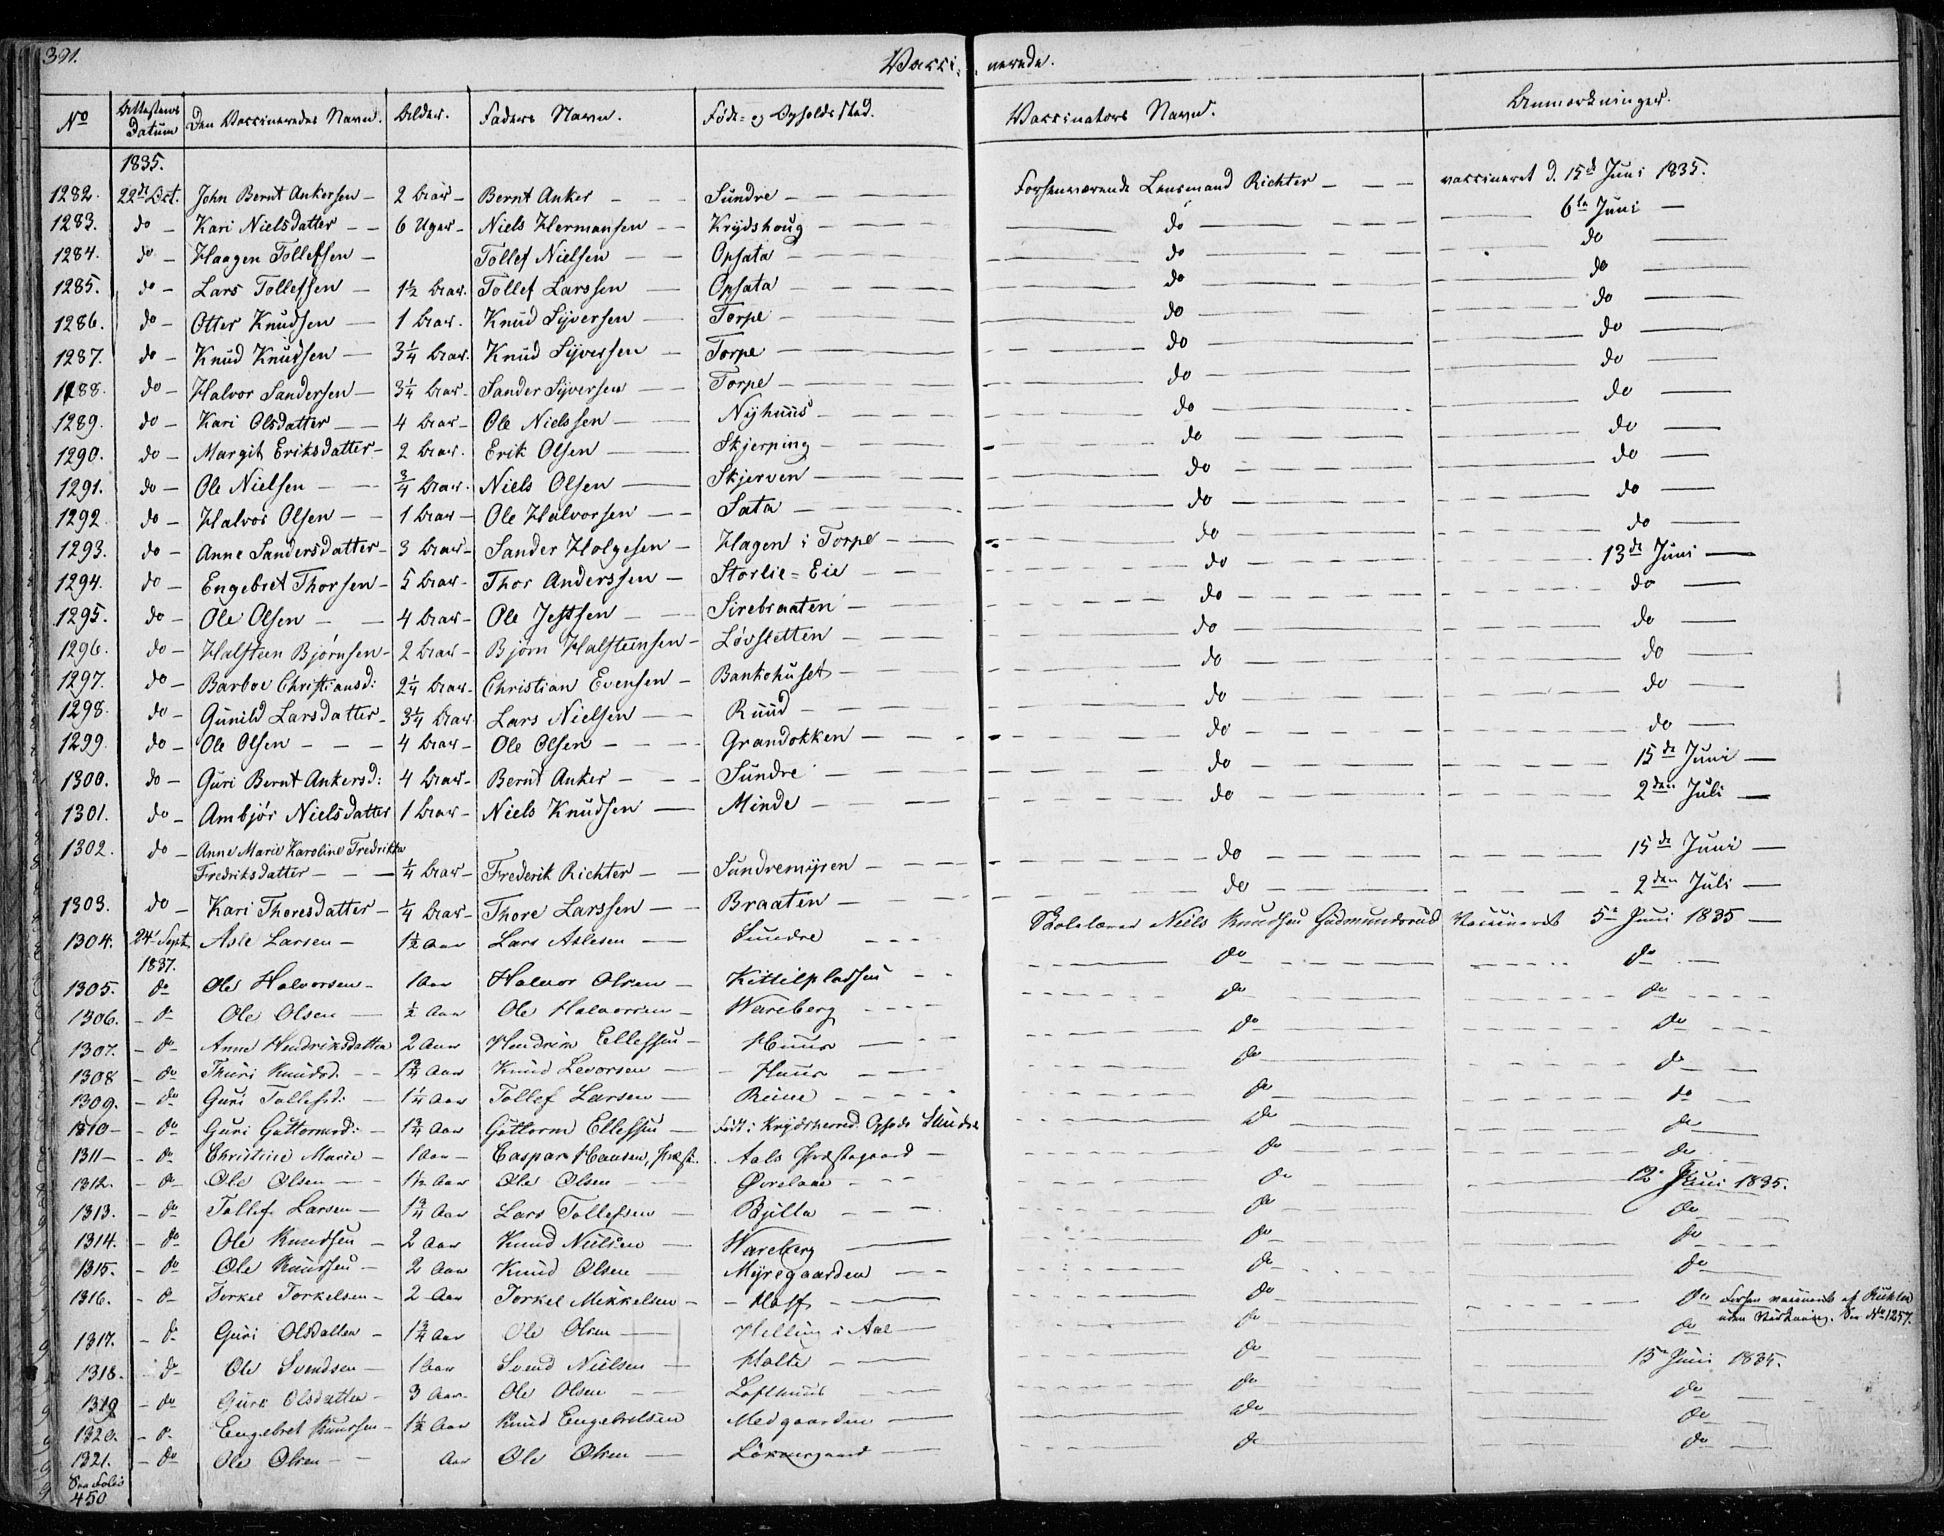 391.
Vacci- nerede.
No | Attestens Datum | Den Vaccineredes Navn. | Alder. | Faders Navn. | Føde- og Opholds Sted. | Vaccinators Navn. | Anmærkninger.
1835.
1282. | 22de Oct. | John Bernt Ankersen | 2 Aar | Bernt Anker | Sundre | Forhenværende Lensmand Richter | vaccineret d. 15de Juni 1835.
1283. | do | Kari Nielsdatter | 6 Uger | Niels Hermansen | Krydshoug | do | 6te Juni
1284. | do | Haagen Tollefsen | | Tollef Nielsen | Opsata | do | do
1285. | do | Lars Tollefsen | 1½ Aar | Tollef Larssen | Opsata | do | do
1286. | do | Otter Knudsen | 1 Aar | Knud Syversen | Torpe | do | do
1287. | do | Knud Knudsen | 3¼ Aar | Knud Syversen | Torpe | do | do
1288. | do | Halvor Sandersen | 3¼ Aar | Sander Syversen | Torpe | do | do
1289. | do | Kari Olsdatter | 4 Aar | Ole Nielssen | Nyhuus | do | do
1290. | do | Margit Eriksdatter | 2 Aar | Erik Olsen | Skjerping | do | do
1291. | do | Ole Nielsen | ¾ Aar | Niels Olsen | Skjerven | do | do
1292. | do | Halvor Olsen | 1 Aar | Ole Halvorsen | Sata | do | do
1293. | do | Anne Sandersdatter | 3 Aar | Sander Holgesen | Hagen i Torpe | do | do
1294. | do | Engebret Thorsen | 5 Aar | Thor Anderssen | Storlie-Eie | do | 13de Juni
1295. | do | Ole Olsen | 4 Aar | Ole Jettsen | Sirebraaten | do | do
1296. | do | Halsteen Bjørnsen | 2 Aar | Bjørn Halsteensen | Løvsletten | do | do
1297. | do | Barboe Christiansd: | 2¼ Aar | Christian Evensen | Bankohuset | do | do
1298. | do | Gunild Larsdatter | 3¼ Aar | Lars Nielsen | Ruud | do | do
1299. | do | Ole Olsen | 4 Aar | Ole Olsen | Grandokken | do | do
1300. | do | Guri Bernt Ankersd: | 4 Aar | Bernt Anker | Sundre | do | 15de Juni
1301. | do | Ambjør Nielsdatter | 1 Aar | Niels Knudsen | Minde | do | 2den Juli
1302. | do | Anne Marie Karoline Fredrikka
Fredriksdatter | ¼ Aar | Frederik Richter | Sundremyren | do | 15de Juni
1303. | do | Kari Thoresdatter | ¼ Aar | Thore Larssen | Braaten | do | 2den Juli
1304. | 24 Sept. | Asle Larsen | 1½ Aar | Lars Aslesen | Sundre | Skolelærer Niels Knudsen Gudmundsrud | Vaccineret 5te Juni 1835
1837.
1305. | do | Ole Halvorsen | 1 Aar | Halvor Olsen | Kittilpladsen | do | do
1306. | do | Ole Olsen | ½ Aar | Ole Halvorsen | Wareberg | do | do
1307. | do | Anne Hendriksdatter | 2 Aar | Hendrik Ellefsen | Huus | do | do
1308 | do | Thuri Knudsd. | 1¾ Aar | Knud Levorsen | Huus | do | do
1309. | do | Guri Tollefsd: | 1¼ Aar | Tollef Larsen | Ruue | do | do
1310 | do | Guri Guttormsd: | 1¾ Aar | Guttorm Ellefsen | født i Krydsherred. Opfødt Sundre | do | do
1311 | do | Christine Marie | 1 Aar | Caspar Hansen, Præst | Aals Præstegaard | do | do
1312. | do | Ole Olsen | 1½ Aar | Ole Olsen | | do | 12te Juni 1835.
1313. | do | Tollef Larsen | 1¾ Aar | Lars Tollefsen | Bjella | do | do
1314. | do | Ole Knudsen | 2 Aar | Knud Nielsen | Wareberg | do | do
1315. | do | Ole Knudsen | 2 Aar | Knud Olsen | Myregaarden | do | do
1316. | do | Torkel Torkelsen | 2 Aar | Torkel Mikkelsen | Hoff | do | do Forhen vaccineret af Richter
uden Virkning. See No 1257.
1317. | do | Guri Olsdatter | 1¾ Aar | Ole Olsen | Helling i Aal | do | do
1318. | do | Ole Svendsen | 1 Aar | Svend Nielsen | Holte | do | 15de Juni 1835.
1319 | do | Guri Olsdatter | 3 Aar | Ole Olsen | Lofthuus | do | do
1320. | do | Engebret Knudsen | 1½ Aar | Knud Engebretsen | Medgaarden | do | do
1321. | do | Ole Olsen | Aar | Ole Olsen | | do | do
See Folio
450